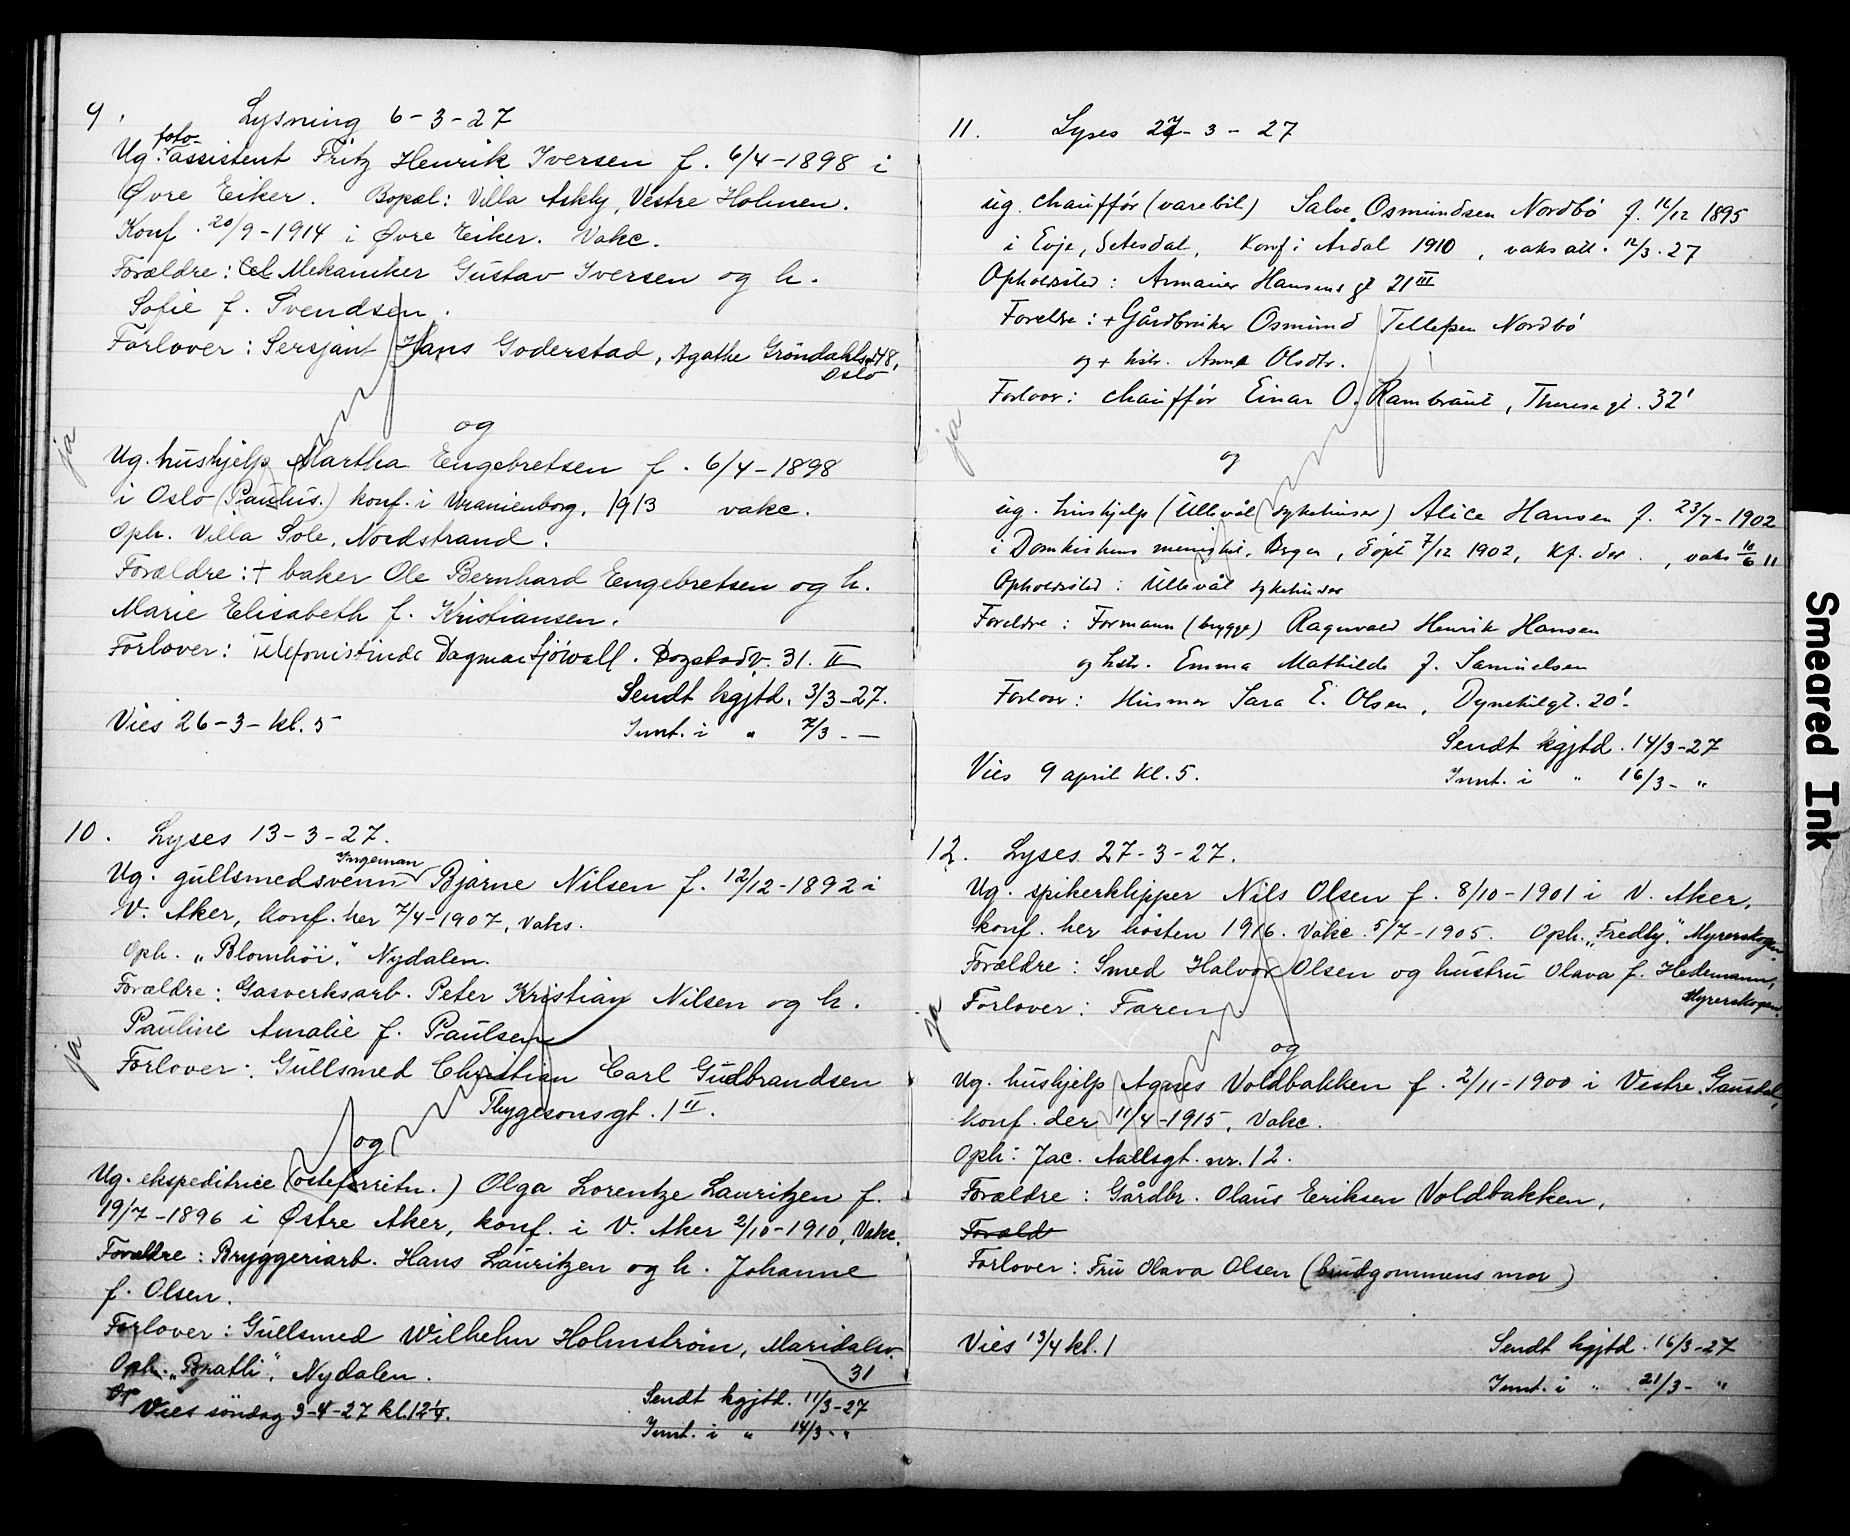 9. Lysning 6-3-27
foto-
Ug. assistent Fritz Henrik Iversen f. 6/4-1898 i
Øvre Eiker. Bopæl: Villa Askly, Vestre Holmen.
Konf. 20/9-1914 i Øvre Eiker. Vakc.
Forældre: Mekaniker Gustav Iversen og h.
Sofie f. Svendsen.
Forlover: Sersjant Hans Goderstad, Agathe Gröndahlsgt 48,
Oslo
og
ja
Ug. hushjelp Martha Engebretsen f. 6/4-1898
i Oslo (Paulus.) konf. i Uranienborg, 1913 vakc.
Oph. Villa Sole, Nordstrand.
Forældre: + baker Ole Bernhard Engebretsen og h.
Marie Elisabeth f. Kristiansen.
Forlover: Telefonistinde Dagmar Sjöwall. Bogstadv. 31. II
Sendt kgjtd. 3/3-27.
Vies 26-3- kl. 5
Innt. i " 7/3 - —
10. Lyses 13-3-27.
Ingeman
Ug. gullsmedsvenn Bjarne Nilsen f. 12/12-1892 i
V. Aker, konf. her 7/4-1907, vaks.
Oph. "Blomhöi", Nydalen.
Forældre: Gasverksarb. Peter Kristian Nilsen og h.
Pauline Amalie f. Paulsen
ja
Forlover: Gullsmed Christian Carl Gudbrandsen
Thygesonsgt. 1 II.
og
Ug. ekspeditrice (osteforretn.) Olga Lorentze Lauritzen f.
19/7-1896 i Østre Aker, konf. i V. Aker 2/10-1910, Vakc.
Forældre: Bryggeriarb. Hans Lauritzen og h. Johanne
f. Olsen.
Forlover: Gullsmed Wilhelm Holmström, Maridalsv.
31
Oph. "Bratli", Nydalen.
Vies söndag 3-4-27 kl. 12¼.
Sendt kgjtd. 11/3-27
Innt. i " 14/3- "
11. Lyses 27-3-27
ug. chaufför (varebil) Salve Osmundsen Nordbö f. 12/12 1895
i Evje, Setesdal, konf i Årdal 1910, vaks att. 12/3.27
Opholdssted: Armauer Hansens gt 21 III
Foreldre: + Gårdbruker Osmund Tellefsen Nordbö
og + hstr. Anna Olsdtr.
Forlover: chauffør Einar O. Rambraut, Theresegt. 32'
ja
og
ug. hushjelp (Ullevål sykehuser) Alice Hansen f. 23/7-1902
i Domkirkens menighet, Bergen, döpt 7/12 1902, kf. der., vaks 10/6 11
Opholdssted: Ullevål sykehuser
Foreldre: Formann (brygge) Ragnvald Henrik Hansen
og hstr. Emma Mathilde f. Samuelsen
Forlover: Husmor Sara E. Olsen, Dynekilgt. 20'.
Sendt kgjtd. 14/3-27
Vies 9 april kl. 5.
Innt. i " 16/3- "
12. Lyses 27-3-27.
Ug. spikerklipper Nils Olsen f. 8/10-1901 i V. Aker,
konf. her hösten 1916. Vakc. 5/7-1905. Oph. "Fredly", Myrerskogen.
Forældre: Smed Halvor Olsen og hustru Olava f. Hedemann,
Myrerskogen.
ja
Forlover: Faren
og
Ug. hushjelp Agnes Voldbakken f. 2/11-1900 i Vestre Gausdal,
konf. der 11/4-1915, Vakc.
Oph: Jac. Aallsgt. nr. 12.
Forældre: Gårdbr. Olaus Eriksen Voldbakken,
Foræld
Forlover: Fru Olava Olsen (brudgommens mor)
Vies 13/4 kl. 1
Sendt kgjtd. 16/3-27
Innt. i " 21/3- "
Smeared Ink